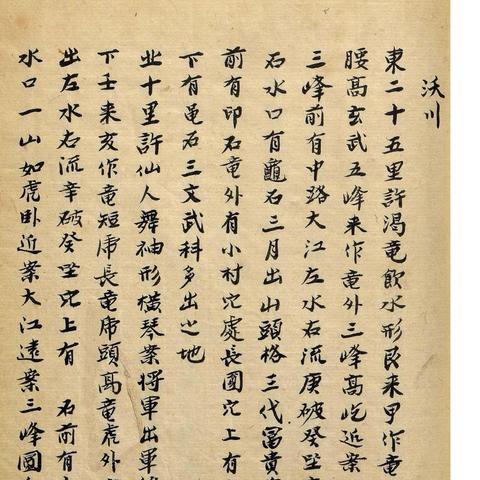 沃川
東二十五里許渴竜飮水形艮来甲作竜
腰高玄武五峰来作竜外三峰高屹近案
三峰前有中路大江左水右流庚破癸坐
石水口有龜石三月出山頭格三代冨貴
前有印石竜外有小村穴處長圓穴上有
下有黾石三文武科多出之地
北十里許仙人舞袖形橫琴案将軍出軍
下壬来亥作竜短席長竜席頭高竜虎外
出左水右流辛破癸坐穴上有 石前有
水口一山如虎卧近案大江遠案三峰圓